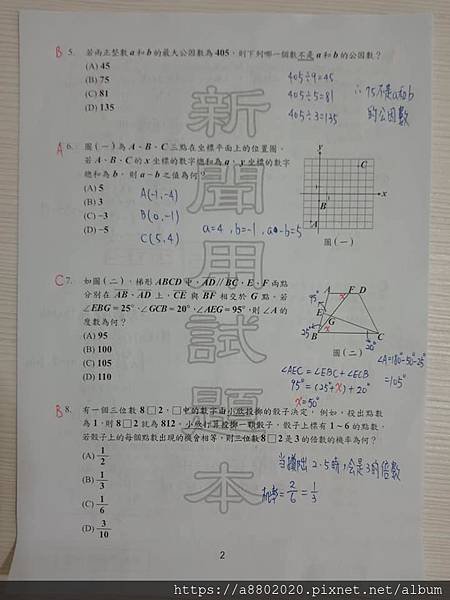 B 5. 若兩正整數 a 和 b 的最大公因數為 405，則下列哪一個數不是 a 和 b 的公因數？
(A) 45
(B) 75
(C) 81
(D) 135
405÷9=45
405÷5=81
405÷3=135
∴ 75不是a和b
的公因數
A 6. 圖(一)為 A、B、C 三點在坐標平面上的位置圖。
若 A、B、C 的 x 坐標的數字總和為 a，y 坐標的數字
總和為 b，則 a－b 之值為何？
(A) 5
(B) 3
(C) －3
(D) －5
A(-1,-4)
B(0,-1)
C(5,4)
a=4，b=-1，a-b=5
y
C
x
1
B
A
圖(一)
C 7. 如圖(二)，梯形 ABCD 中，AD // BC，E、F 兩點
分別在 AB、AD 上，CE 與 BF 相交於 G 點。若
∠EBG＝25°，∠GCB＝20°，∠AEG＝95°，則∠A 的
度數為何？
(A) 95
(B) 100
(C) 105
(D) 110
A F D
95°
E
x
G
25°
x
B C
20°
圖(二)
∠AEC = ∠EBC+∠ECB
95° = (25°+x)+20°
x=50°
∠A=180°-50°-25°
=105°
B 8. 有一個三位數 8□2，□中的數字由小欣投擲的骰子決定，例如，投出點數
為 1，則 8□2 就為 812。小欣打算投擲一顆骰子，骰子上標有 1～6 的點數，
若骰子上的每個點數出現的機會相等，則三位數 8□2 是 3 的倍數的機率為何？
(A) 1/2
(B) 1/3
(C) 1/6
(D) 3/10
當擲出 2、5時，會是3的倍數
機率= 2/6 = 1/3
新聞用試題本
2
https://a8802020.pixnet.net/album